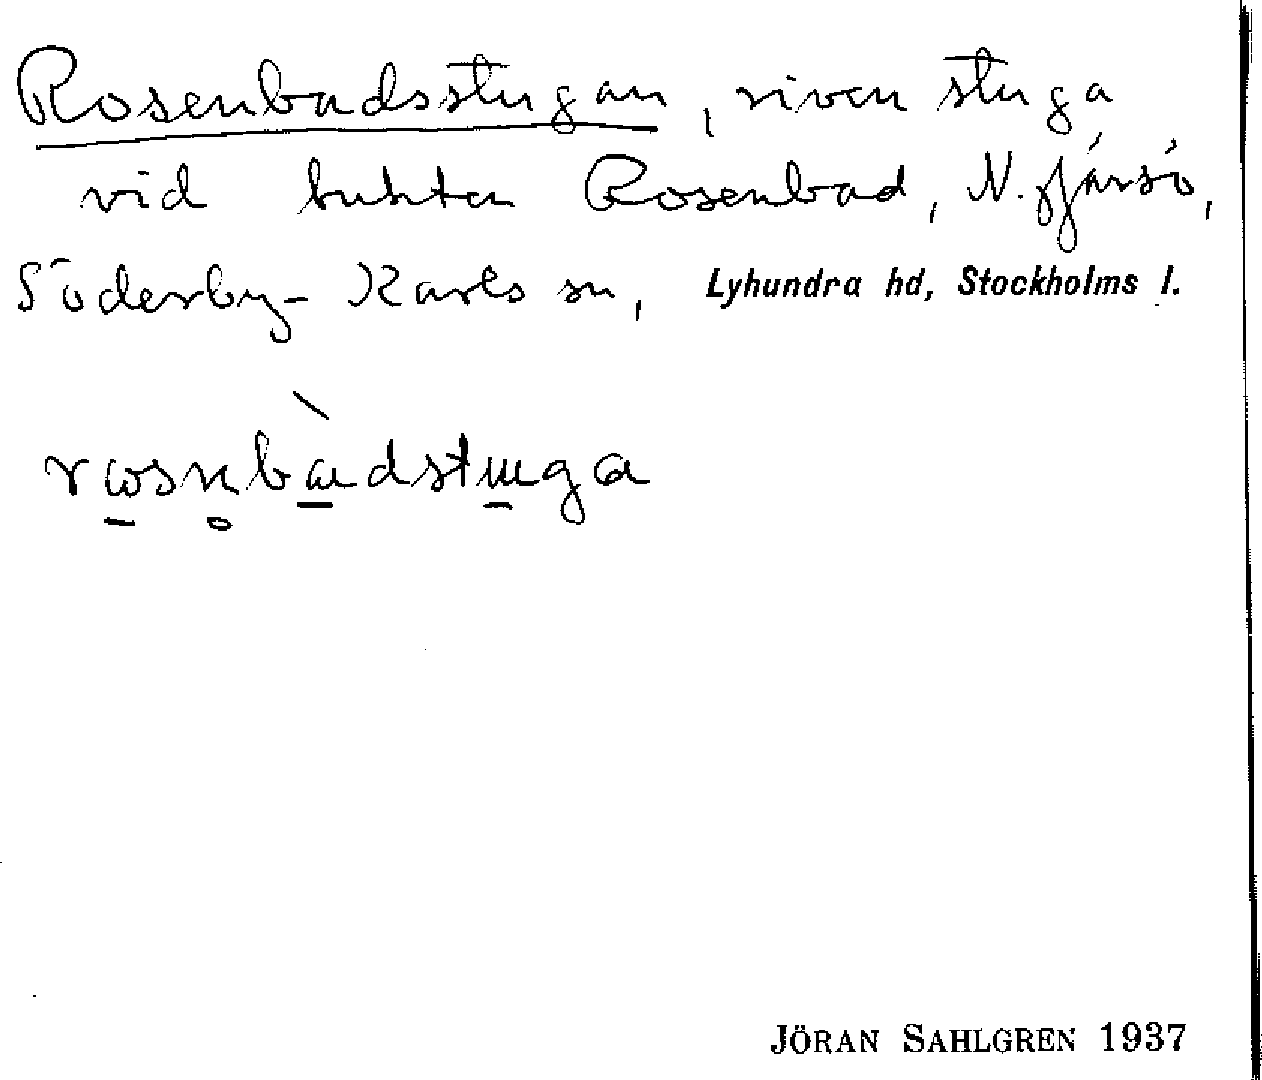 Rosenbadsstugan, riven stuga
vid bukten Rosenbad, N.
Söderby-Karls sn, Lyhundra hd, Stockholms l.
JÖRAN SAHLGREN 1937